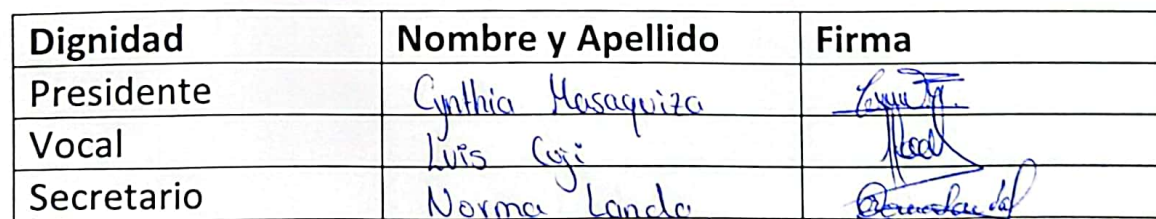 Dignidad Nombre y Apellido Firma
Presidente Cynthia Masaquiza
Vocal Luis Cuji
Secretario Norma Landa